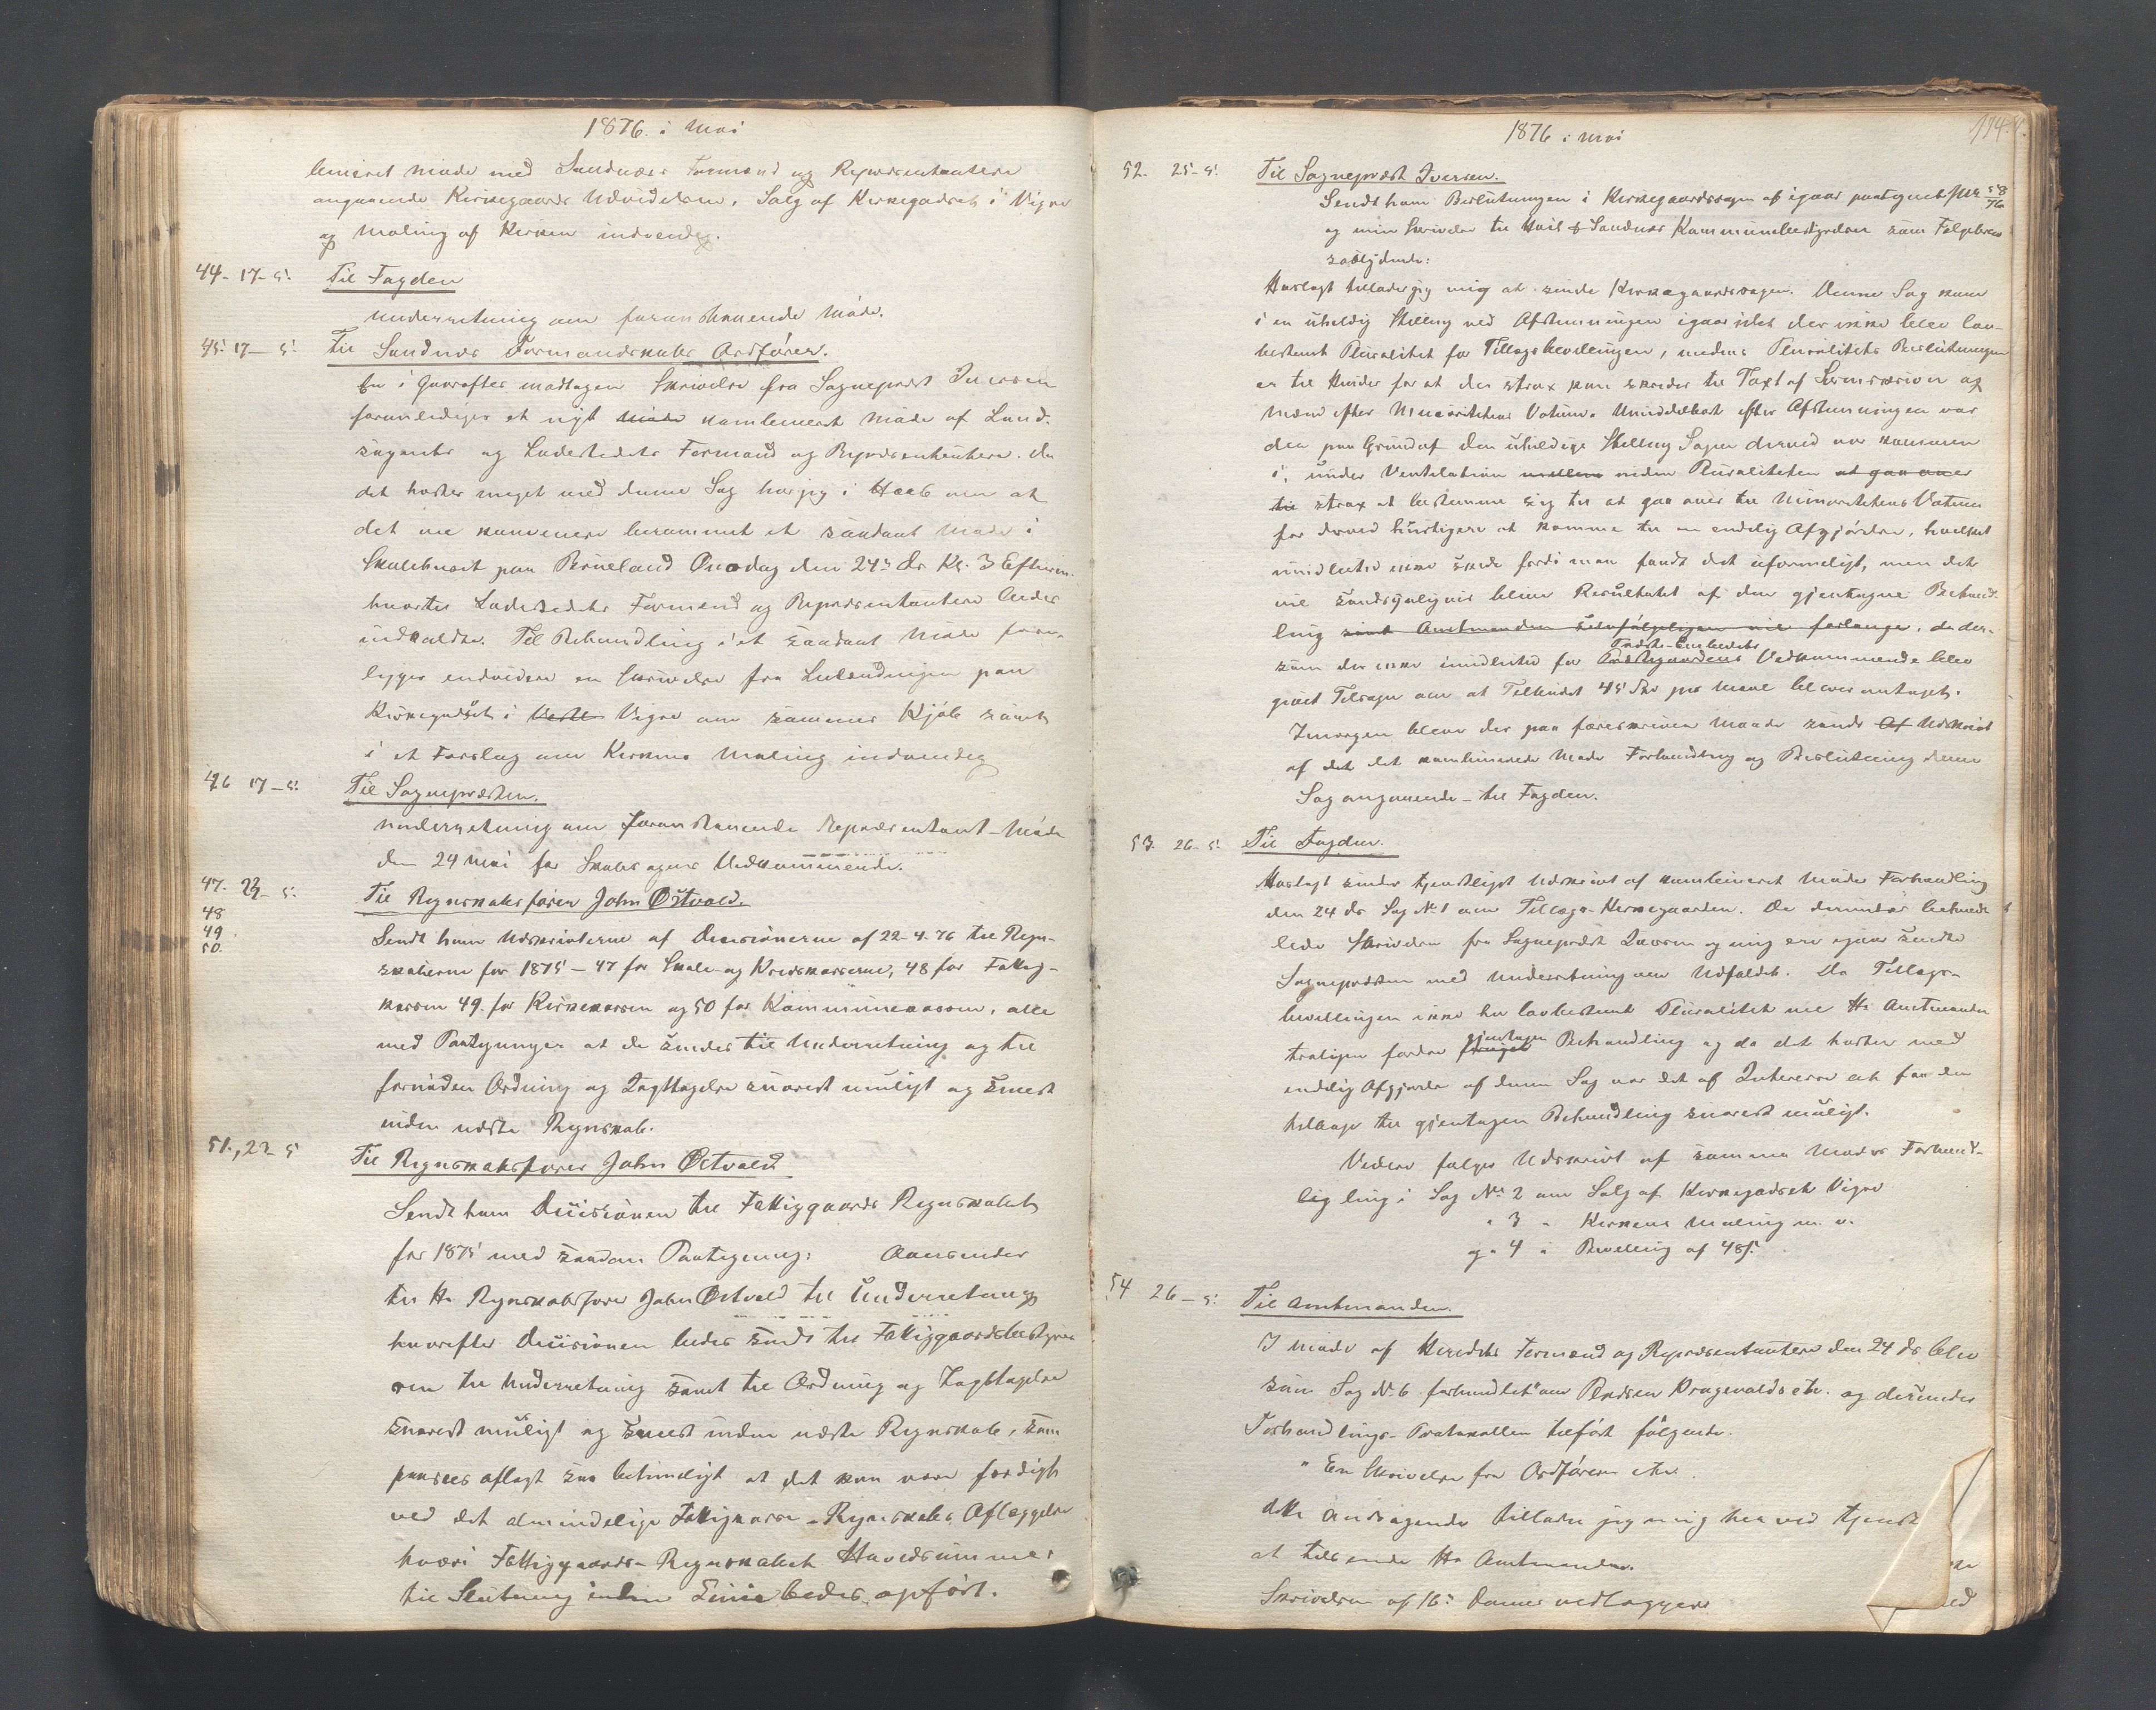 1876. i Mai
bineret Møde med Sandnæs Formænd og Repræsentantere
angaaende Kirkegaards Udvidelsen, Salg af Kirkegodset i Vigre
og Maling af Kirken indvendig.
44- 17- 5. Til Fogden
Underretning om foranstaaende Møde.
45. 17- 5. Til Sandnæs Formandskabs Ordfører.
En i Gaaraftes modtagen Skrivelse fra Sognepræst Iversen
foranlediger et nyt Møde kombineret Møde af Land-
sognets og Ladestedets Formænd og Repræsentantere. Da
det haster meget med denne Sag har jeg i Haab om at
det vil konvenere berammet et saadant Møde i
Skolehuset paa Brueland Onsdag den 24de ds Kl. 3 Efterm.
hvortil Ladestedets Formænd og Repræsentantere bedes
indkaldte. Til Behandling i et saadant Møde fore-
ligger endvidere en Skrivelse fra paa
Kirkegodset i Vigre om sammes Kjøb samt
i et Forslag om Kirkens Maling indvendig
46 17-5. Til Sognepræsten.
Underretning om foranstaaende Repræsentant-Møde
den 24 Mai for Skolesagens Vedkommende.
47. 23- 5. Til Regnskabsfører John Østvold.
48
49
50.
Sendt ham Udskrifterne af Decisionerne af 22-4-76 til Regn-
skaberne for 1875 - 47 for Skole og Kredskasserne, 48 for Fattig-
kassen 49. for Kirkekassen og 50 for Kommunekassen, alle
med Paategninger at de sendes til Underretning og til
fornøden Ordning og Iagttagelse snarest muligt og senest
inden næste Regnskab.
51., 23- 5 Til Regnskabsfører John Østvold
Sendt ham Decisionen til Fattiggaards Regnskabet
for 1875 med saadan Paategning: Oversendes
til Hr Regnskabsfører John Østvold til Underretning
hvorefter Decisionen bedes sendt til Fattiggaardsbestyre-
ren til Underretning samt til Ordning og Iagttagelse
snarest muligt og senest inden næste Regnskab, som
paasees aflagt saa betimeligt at det kan være færdigt
ved det almindelige Fattigkasse-Regnskabs Aflæggelse
hvori Fattiggaards-Regnskabet Hovedsummer
til Slutning inden Linie bedes opført.
1876 i Mai
114.
52. 25-5. Til Sognepræst Iversen.
Sendt ham Beslutningen i Kirkegaardssagen af igaar paategnet 58/76
og min Skrivelse til Sandnæs Kommunebestyrelse som Følgebrev
saalydende:
Hoslagt tillader jeg mig at sende Kirkegaardssagen. Denne Sag kom
i en uheldig Stilling ved Afstemningen igaar idet der ikke blev lov-
bestemt Pluralitet for Tillægsbevilgningen, medens Pluralitets Beslutningen
er til Hinder for at der strax kan skrides til Taxt af og
Mænd efter Minoritetens Votum. Umiddelbart efter Afstemningen var
den paa Grund af den uheldige Stilling Sagen derved var kommen
i, under Ventilation mellem inden Pluraliteten at gaa over
til strax at bestemme sig til at gaa over til Minoritetens Votum
for derved hurtigere at komme til en endelig Afgjørelse, hvilket
imidlertid ikke skede fordi man fandt det uformeligt, men det
vil sandsynligvis blive Resultatet af den gjentagne Behand-
ling samt Amtmanden selvfølgeligen vil forlange. da der-
Præste-Embedets
som der ikke imidlertid for Præstegaardens Vedkommende blev
givet Tilsagn om at Tilbudet 45 Sk pr Maal bliver antaget.
Imorgen bliver der paa foreskreven Maade sendt Af Udskrift
af det det kombinerede Møde Forhandling og Beslutning denne
Sag angaaende - til Fogden.
53. 26-5 Til Fogden.
Hoslagt sendes tjenstligst Udskrift af kombineret Mødes Forhandling
den 24 ds Sag No 1 om Tillægs-Kirkegaarden. De derunder behand-
lede Skrivelser fra Sognepræst Iversen og mig ere igaar sendte
Sognepræsten med Underretning om Udfaldet. Da Tillægs-
bevilgningen ikke har lovbestemt Pluralitet vil Hr Amtmanden
gjentagen
troligen fordre Behandling og da det haster med
endelig Afgjørelse af denne Sag var det af Interesse at faa den
tilbage til gjentagen Behandling snarest muligt.
Videre følger Udskrift af samme Mødes Forhand-
lig ling i Sag No 2 om Salg af Kirkegodset Vigre
" 3 - Kirkens Maling m. v.
og " 4 " Bevilling af 48
54 26-5. Til Amtmanden.
I Møde af Herredets Formænd og Repræsentantere den 24 ds blev
som Sag No. 6 forhandlet "om etc. og derunder
Forhandlings-Protokollen tilført følgende.
" En Skrivelse fra Ordføreren etc.
dette andragende tillader jeg mig herved tjenst
at tilsende Hr Amtmanden.
Skrivelsen af 16de vedlægges